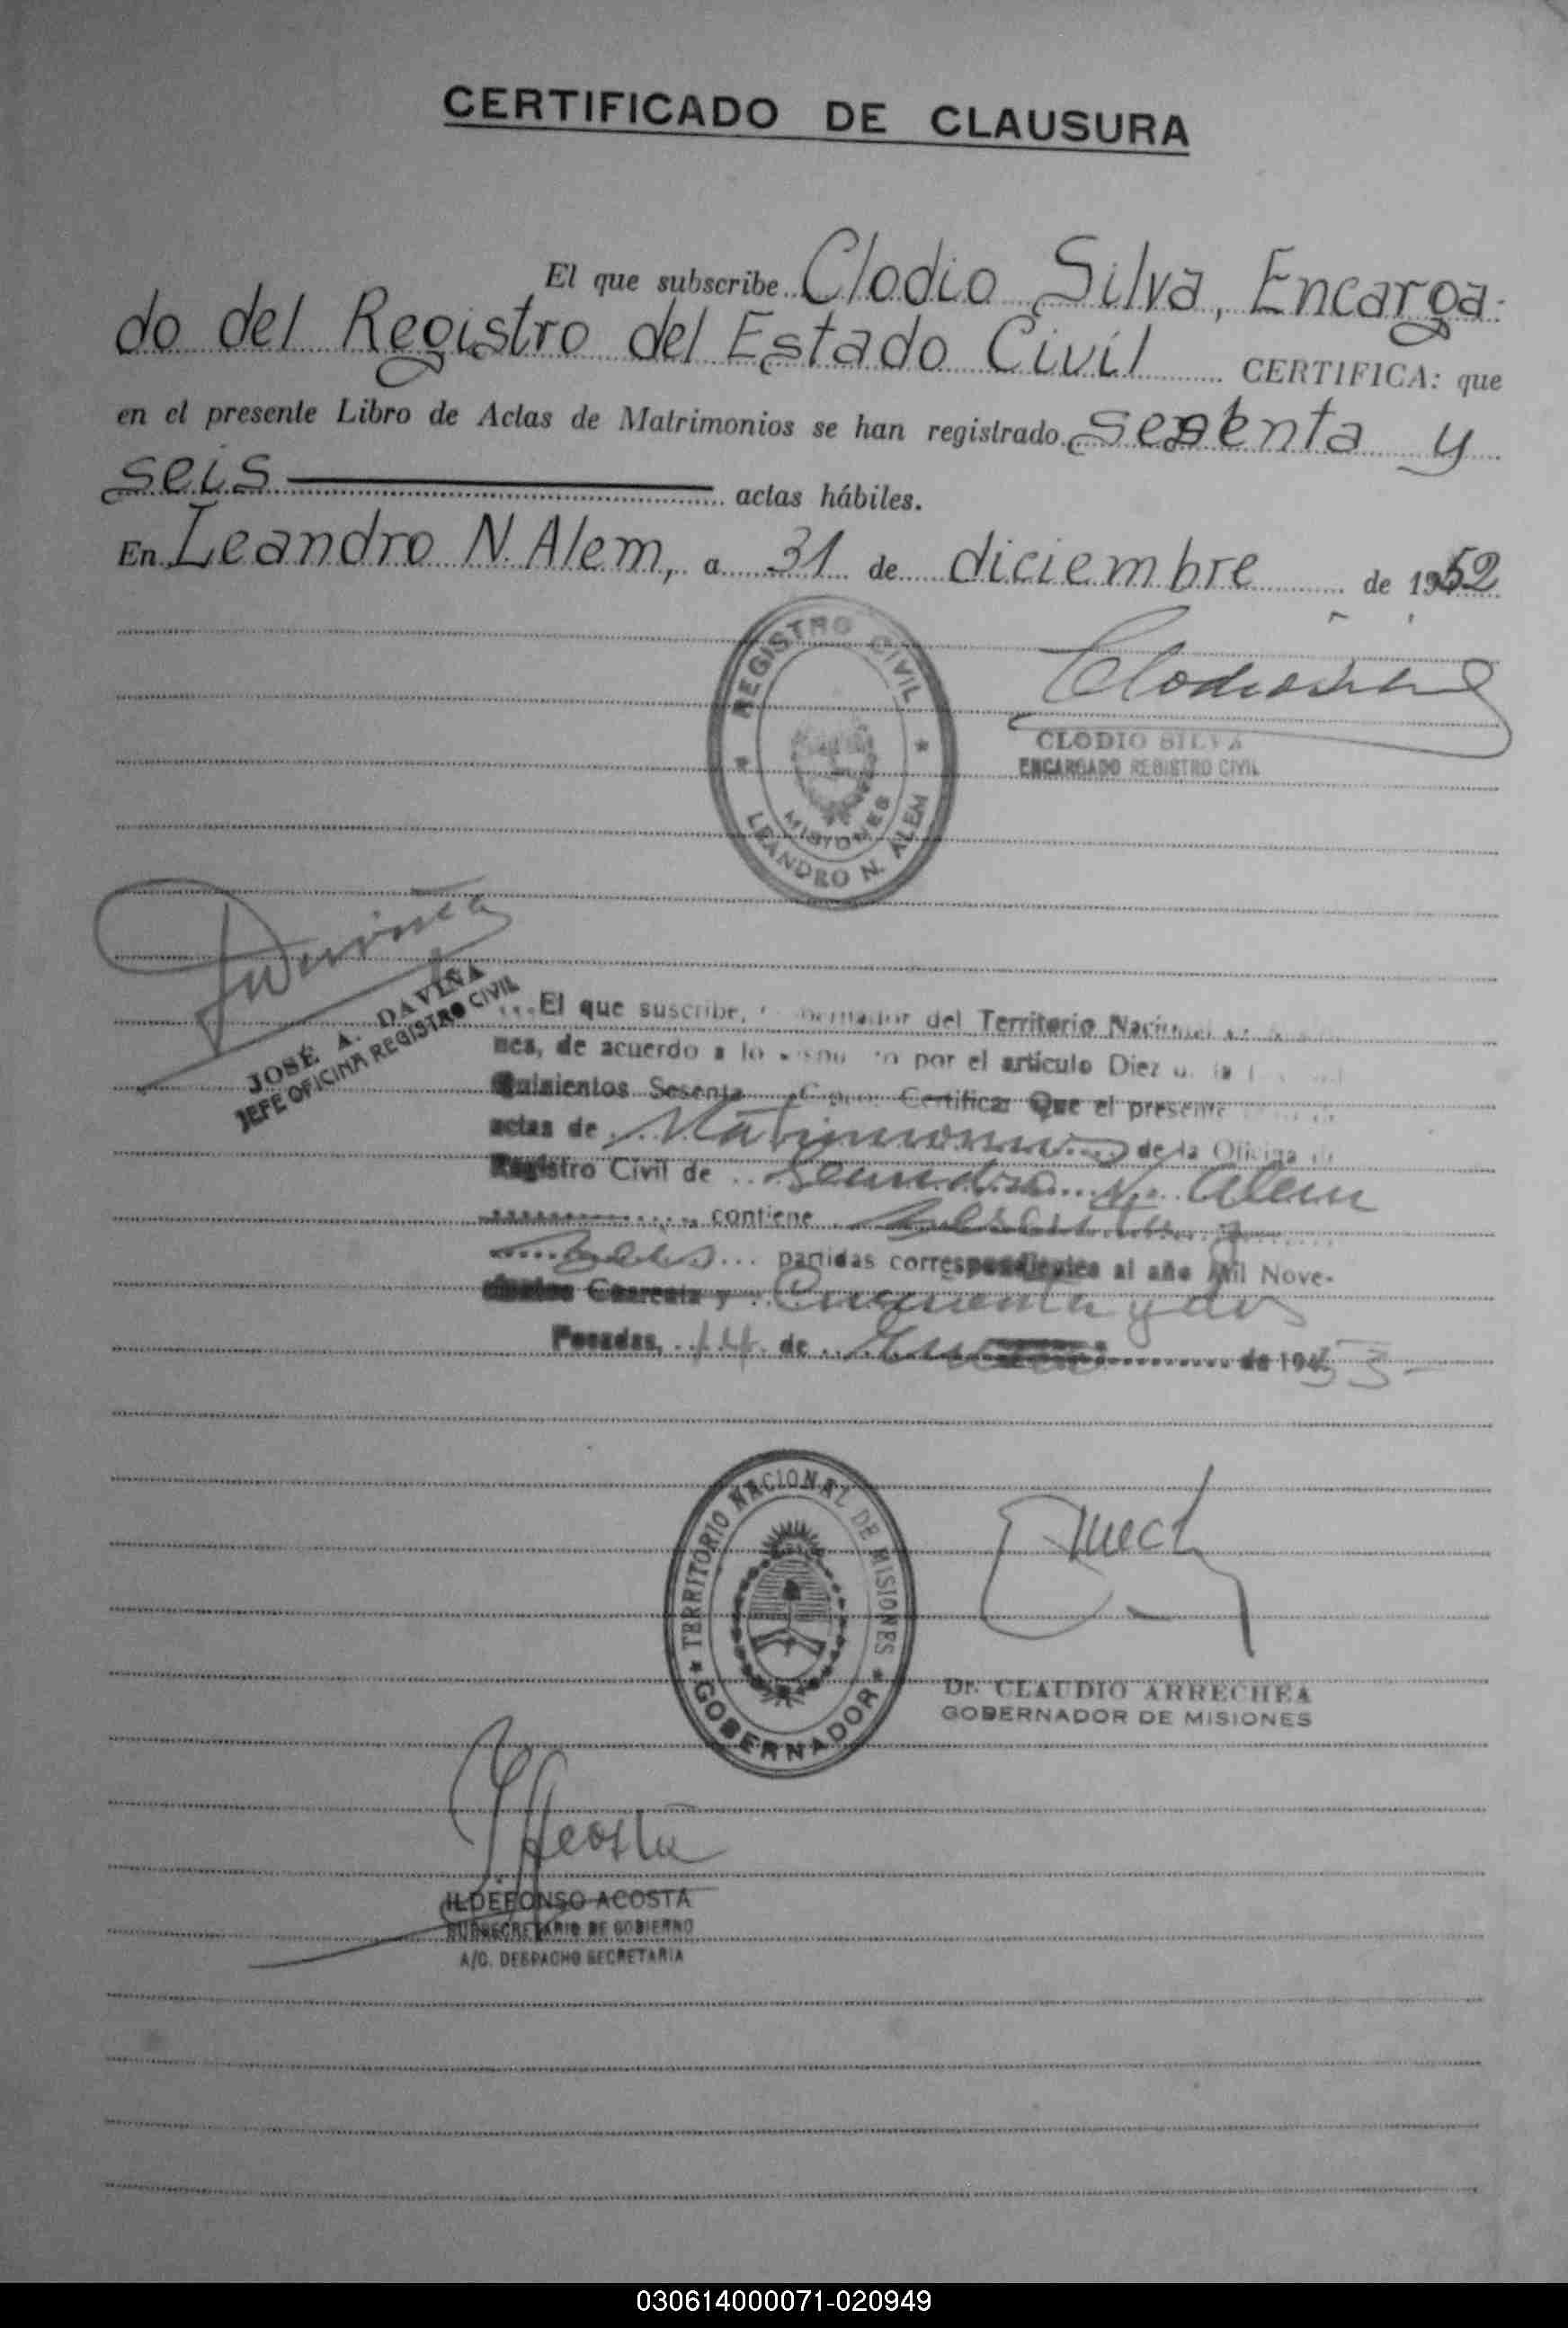 CERTIFICADO DE CLAUSURA
El que subscribe Clodio Silva, Encarga-
do del Registro del Estado Civil CERTIFICA: que
en el presente Libro de Actas de Matrimonios se han registrado y
seis actas hábiles.
En Leandro N. Alem, a 31 de diciembre de 1952
REGISTRO CIVIL
MISIONES
LEANDRO N. ALEM
CLODIO SILVA
ENCARGADO REGISTRO CIVIL
JOSÉ A. DAVIÑA
JEFE OFICINA REGISTRO CIVIL
El que suscribe, del Territorio Nacional
nes, de acuerdo a lo por el artículo Diez
Quinientos Sesenta Certifica: Que el presente
actas de Matrimonios de la Oficina de
Registro Civil de Leandro N. Alem
contiene
seis partidas correspondientes al año Mil Nove-
cientos Cuarenta y Cincuenta y dos
Posadas, 14 de Enero de 1953
TERRITORIO NACIONAL DE MISIONES
GOBERNADOR
Dr. CLAUDIO ARRECHEA
GOBERNADOR DE MISIONES
Acosta
ILDEFONSO ACOSTA
SUBSECRETARIO DE GOBIERNO
A/C. DESPACHO SECRETARIA
030614000071-020949